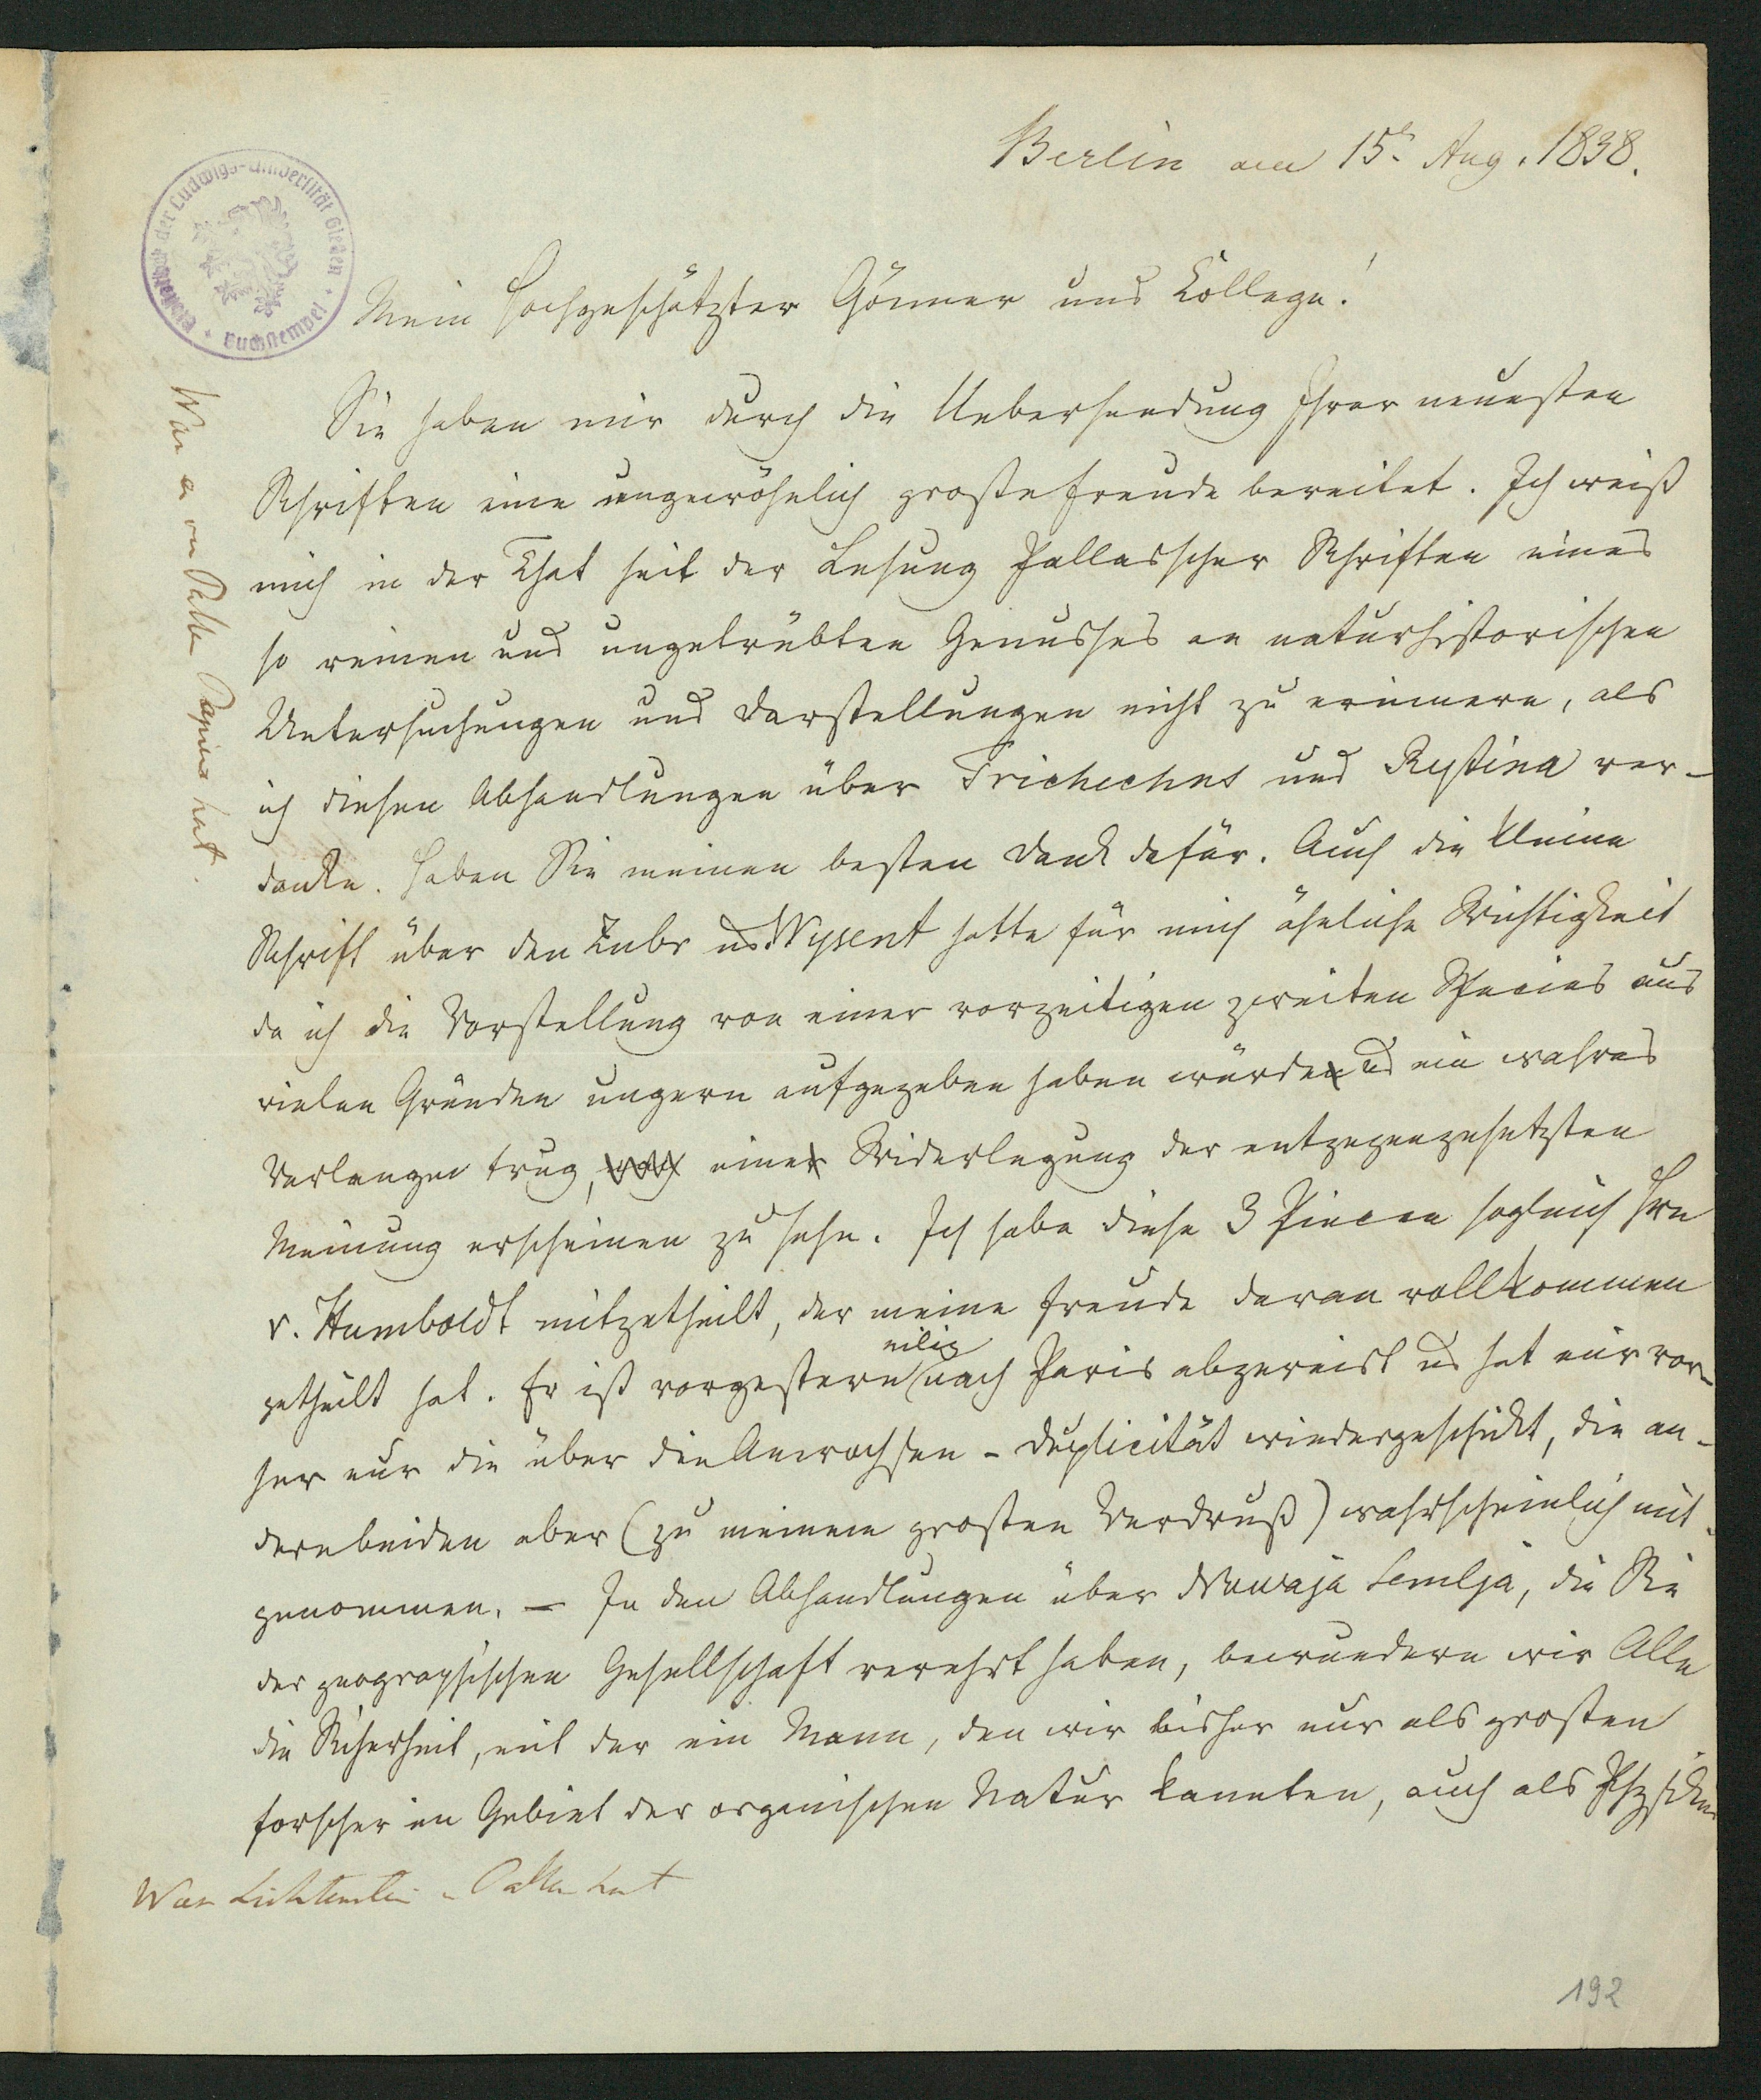 Berlin am 15. Aug. 1838.
Bibliothek der Ludwigs-Universität Gießen · Buchstempel ·
Mein hochgeschätzter Gönner und College!
Sie haben mir durch die Uebersendung Ihrer neuesten
Schriften eine ungewöhnlich große Freude bereitet. Ich weiß
mich in der That seit der Lesung Pallasscher Schriften eines
so reinen und ungetrübten Genusses an naturhistorischen
Untersuchungen und Darstellungen nicht zu erinnern, als
ich diesen Abhandlungen über Trichechus und Rystina ver-
danke. Haben Sie meinen besten Dank dafür. Auch die kleine
Schrift über den Zubr und Wysent hatte für mich ähnliche Wichtigkeit
da ich die Vorstellung von einer vorzeitigen zweiten Species aus
vielen Gründen ungern aufgegeben haben würde und ein wahres
Verlangen trug, eine Widerlegung der entgegengesetzten
Meinung erscheinen zu sehn. Ich habe diese 3 Piecen sogleich Hrn
v. Humboldt mitgetheilt, der meine Freude daran vollkommen
getheilt hat. Er ist vorgestern eilig nach Paris abgereist und hat mir vor-
her nur die über die Auerochsen-Duplicität wiedergeschickt, die an-
dern beiden aber (zu meinem großen Verdruß) wahrscheinlich mit-
genommen. — In den Abhandlungen über Nowaja Semlja, die Sie
der geographischen Gesellschaft verehrt haben, bewundern wir Alle
die Sicherheit, mit der ein Mann, den wir bisher nur als großen
Forscher im Gebiet der organischen Natur kannten, auch als Physiker
Wer Lichtenstein
hat
Papiere hat.
192